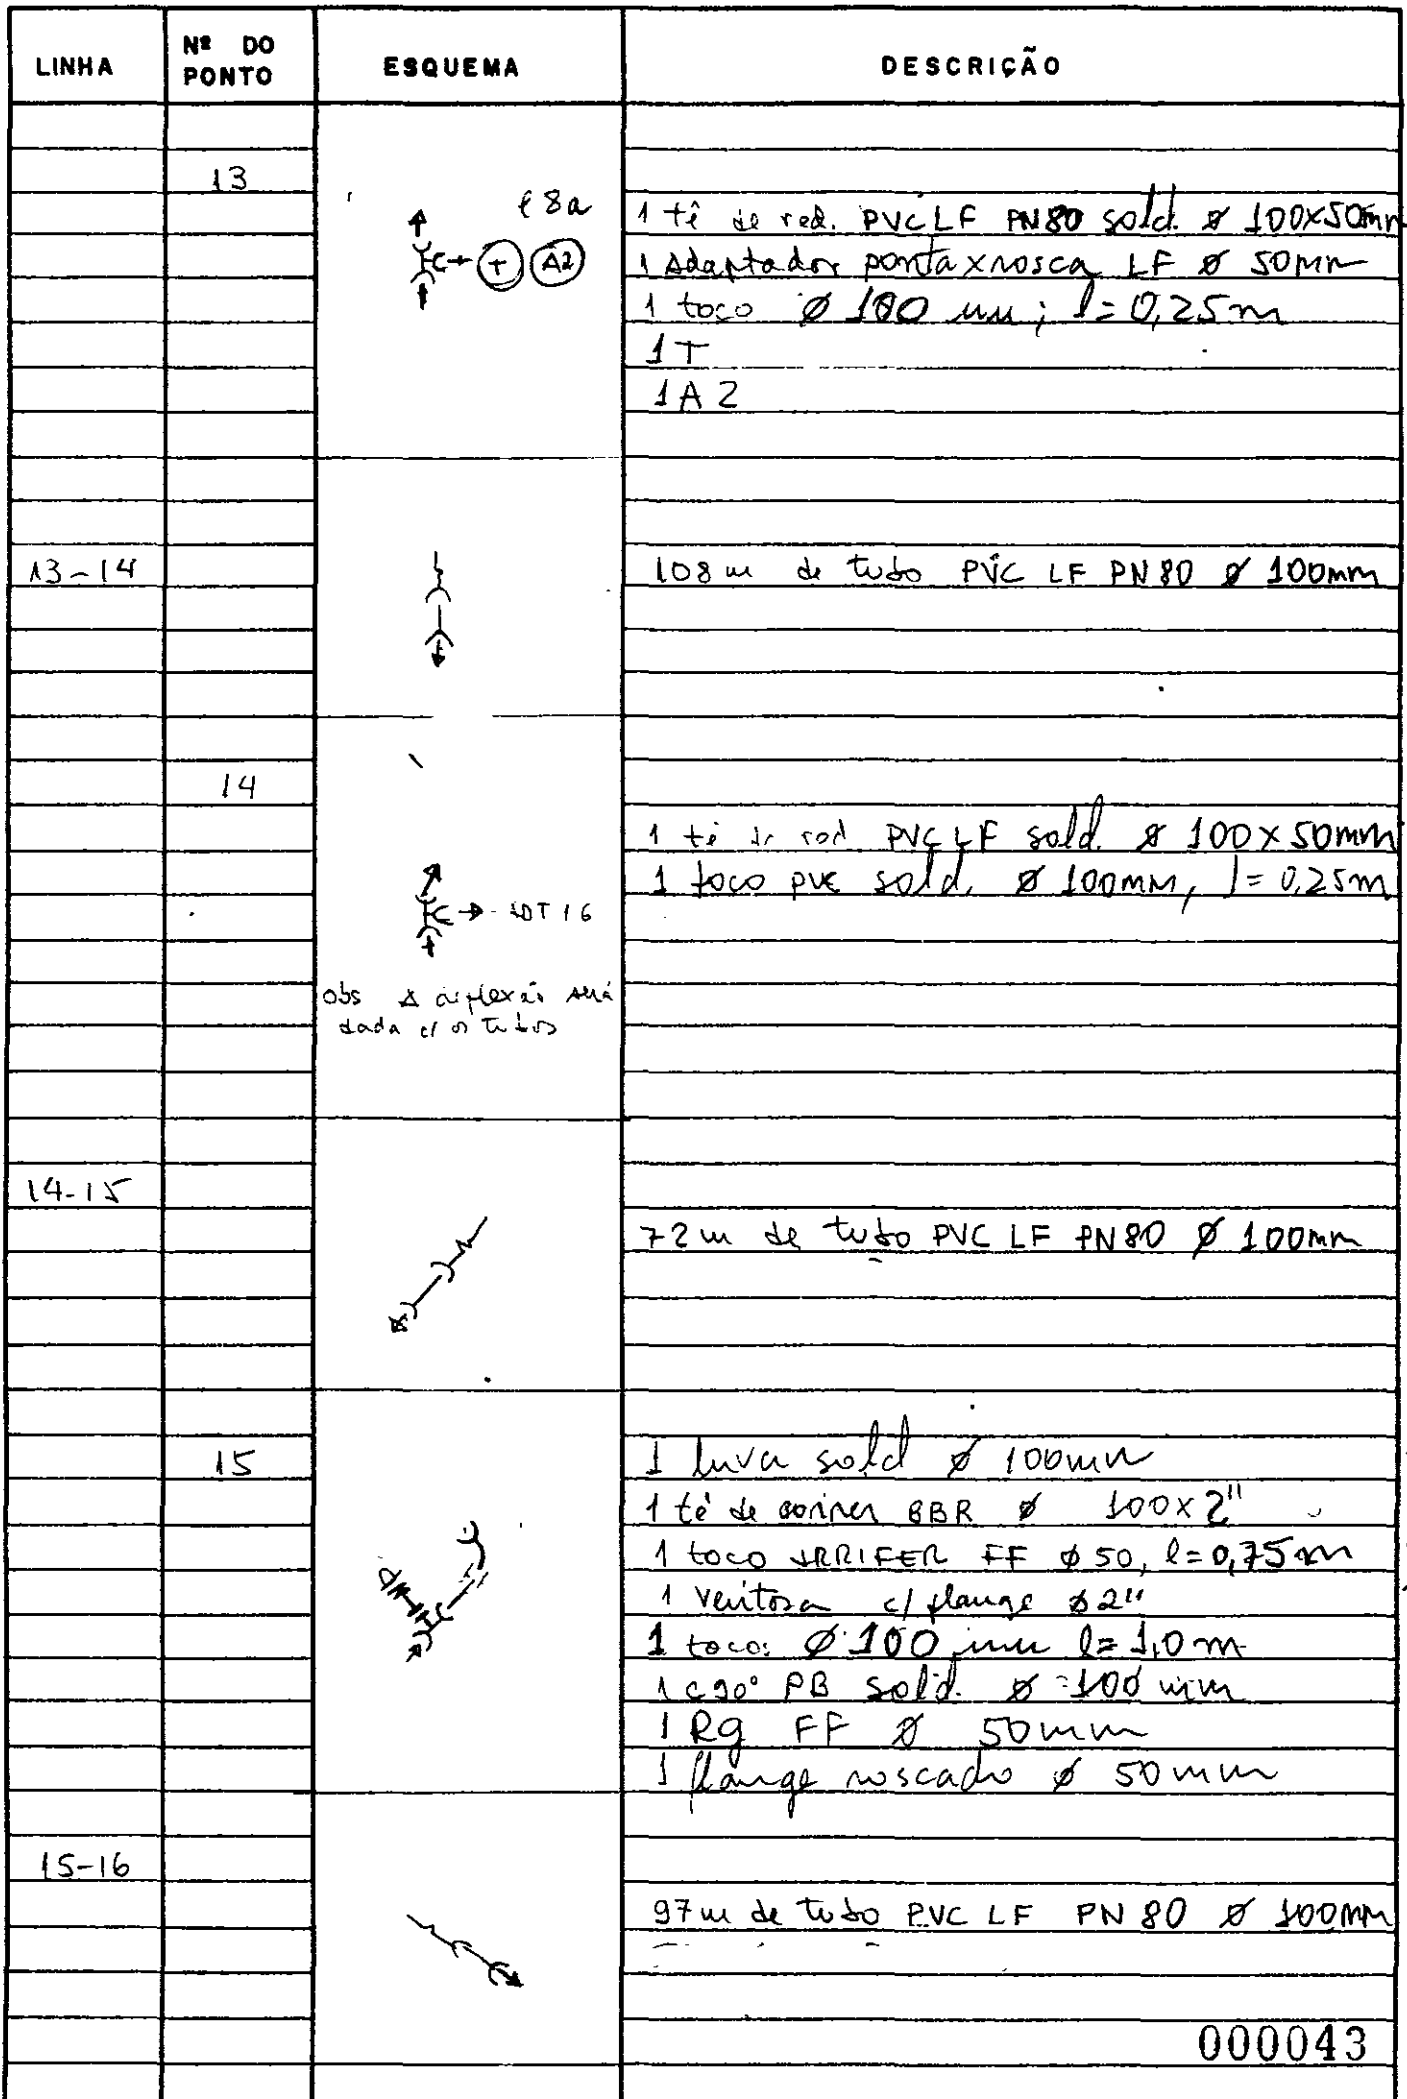 LINHA Nº DO PONTO ESQUEMA DESCRIÇÃO
13
8a
T A2
1 tê de red. PVC LF PN80 sold. ø 100x50mm
1 Adaptador ponta x rosca LF ø 50mm
1 toco ø 100 mm; l=0,25m
1T
1A2
13-14
108m de tubo PVC LF PN80 ø 100mm
14
1 tê de red. PVC LF sold. ø 100x50mm
1 toco pvc sold. ø 100mm, l=0,25m
16
obs A deflexão será
dada c/ os tubos
14-15
72m de tubo PVC LF PN80 ø 100mm
15
1 luva sold ø 100mm
1 tê de correr BBR ø 100x2"
1 toco IRRIFER FF ø50, l=0,75m
1 ventosa c/ flange ø2"
1 toco: ø 100 mm l=1,0m
1 c90° PB sold. ø 100 mm
1 Rg FF ø 50mm
1 flange roscado ø 50mm
15-16
97m de tubo PVC LF PN80 ø 100mm
000043